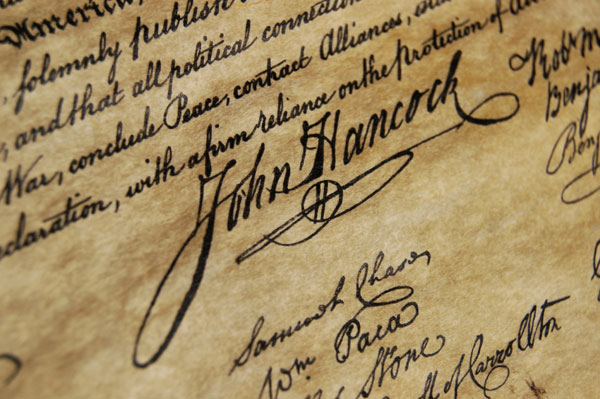 America,
, solemnly publish
, and that all political connection
War, conclude Peace, contract Alliances,
eclaration, with a firm reliance on the protection of
John Hancock
H
Robt M
Benja
Benj
Samuel Chase
Wm Paca
Stone
of Carrollton